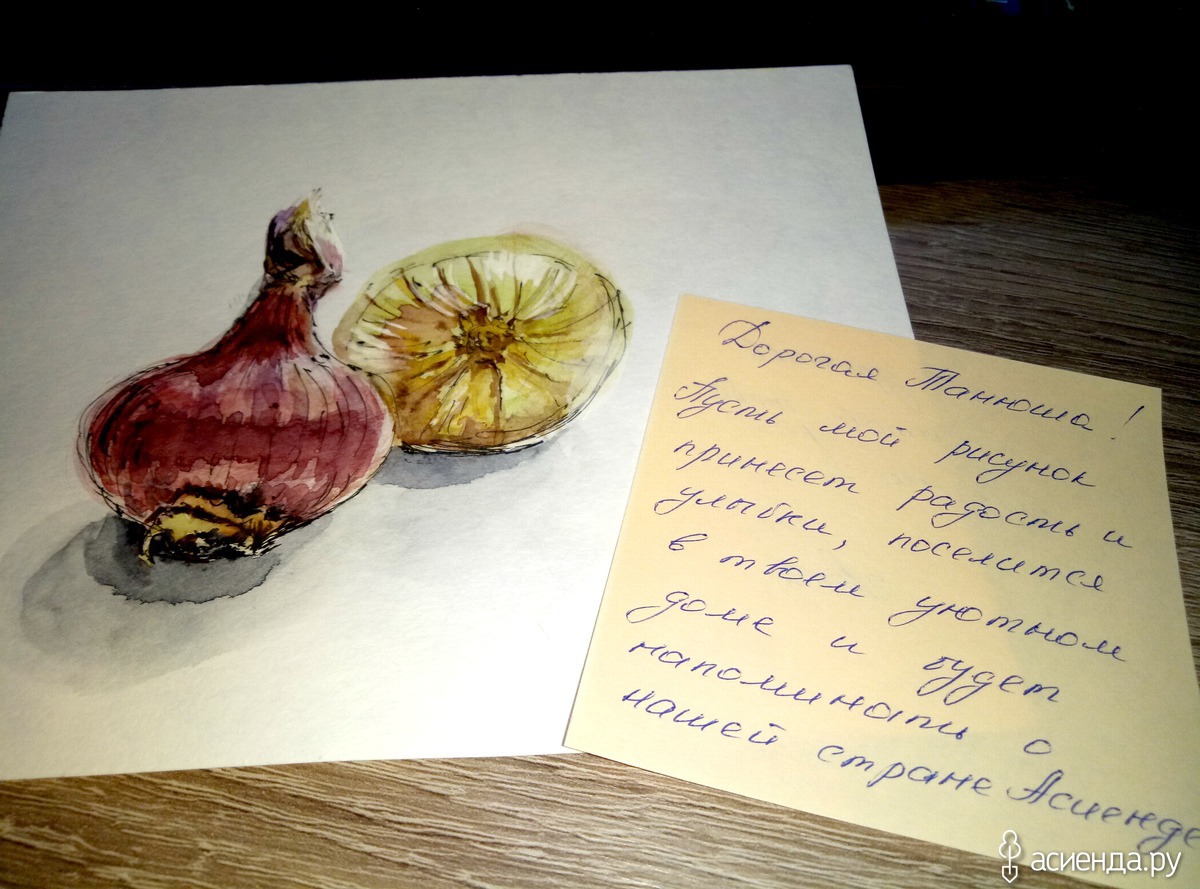 Дорогая Танюша!
Пусть мой рисунок
принесет радость и
улыбки, поселится
в твоем уютном
доме и будет
напоминать о
нашей стране Асиенде
асиенда.ру